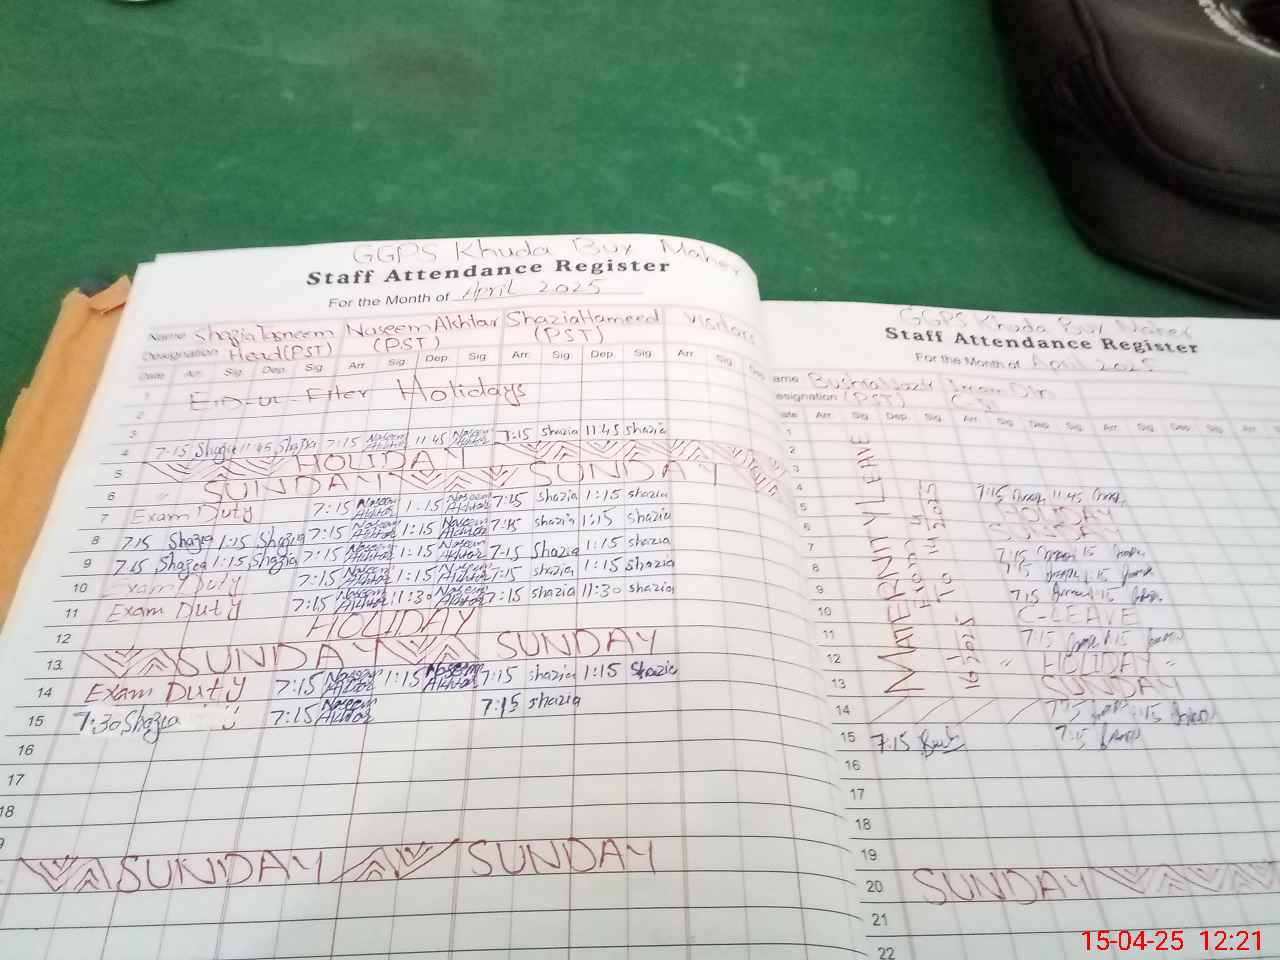 GGPS Khuda Bux Maher
Staff Attendance Register
For the Month of April 2025
Name Shazia Tasneem Naseem Akhtar Shazia Hameed Visitors
Designation Head (PST) (PST) (PST)
Date Arr. Sig. Dep. Sig Arr Sig Dep Sig Arr. Sig Dep Sig Arr Sig Dep
1 Eid-ul-Fiter Holidays
2
3
4 7:15 Shazia 11:45 Shazia 7:15 Naseem Akhtar 11 45 Naseem Akhtar 7:15 Shazia 11:45 Shazia
5 HOLIDAY
6 SUNDAY SUNDAY
7 Exam Duty 7:15 Naseem Akhtar 1:15 Naseem Akhtar 7:15 shazia 1:15 shazia
8 7:15 Shazia 1:15 Shazia 7:15 Naseem Akhtar 1:15 Naseem Akhtar 7:15 shazia 1:15 shazia
9 7:15 Shazia 1:15 Shazia 7:15 Naseem Akhtar 1:15 Naseem Akhtar 7:15 Shazia 1:15 shazia
10 Exam Duty 7:15 Naseem Akhtar 1:15 Naseem Akhtar 7:15 shazia 1:15 shazia
11 Exam Duty 7:15 Naseem Akhtar 11:30 Naseem Akhtar 7:15 shazia 11:30 shazia
12 HOLIDAY
13 SUNDAY SUNDAY
14 Exam Duty 7:15 Naseem Akhtar 1:15 Naseem Akhtar 7:15 shazia 1:15 Shazia
15 7:30 Shazia 7:15 Naseem Akhtar 7:15 shazia
16
17
18
SUNDAY SUNDAY
GGPS Khuda Bux Maher
Staff Attendance Register
For the Month of April 2025
ame Bushra
esignation (PST)
ate Arr. Sig Dep Sig Arr Sig Dep Sig Arr Sig Dep Sig Arr
MATERNITY LEAVE
16 1 2025 To 14 2025
1
2
3
4 7:15 11:45
5 HOLIDAY
6 SUNDAY
7 7:15 1:15
8 7:15 1:15
9 7:15 1:15
10 C-LEAVE
11 7:15 1:15
12 " HOLIDAY "
13 SUNDAY
14 7:15 1:15
15 7:15 7:15
16
17
18
19
20 SUNDAY
21
22
15-04-25 12:21